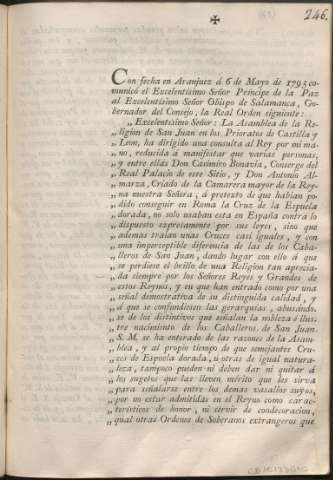 246.
✠
Con fecha en Aranjuez á 6 de Mayo de 1795 co-
municó el Excelentísimo Señor Príncipe de la Paz
al Excelentísimo Señor Obispo de Salamanca, Go-
bernador del Consejo, la Real Orden siguiente:
„ Excelentísimo Señor: La Asamblea de la Re-
„ ligion de San Juan en los Prioratos de Castilla y
„ Leon, ha dirigido una consulta al Rey por mi ma-
„ no, reducida á manifestar que varias personas,
„ y entre ellas Don Casimiro Bonavia, Conserge del
„ Real Palacio de este Sitio, y Don Antonio Al-
„ marza, Criado de la Camarera mayor de la Rey-
„ na nuestra Señora, á pretexto de que habian po-
„ dido conseguir en Roma la Cruz de la Espuela
„ dorada, no solo usaban esta en España contra lo
„ dispuesto expresamente por sus leyes, sino que
„ ademas traían unas Cruces casi iguales, y con
„ una imperceptible diferencia de las de los Caba-
„ lleros de San Juan, dando lugar con ello á que
„ se perdiese el brillo de una Religion tan aprecia-
„ da siempre por los Señores Reyes y Grandes de
„ estos Reynos, y en que han entrado como por una
„ señal demostrativa de su distinguida calidad, y
„ á que se confundiesen las gerarquías, abusándo-
„ se de los distintivos que señalan la nobleza é ilus-
„ tre nacimiento de los Caballeros de San Juan.
„ S. M. se ha enterado de las razones de la Asam-
„ blea, y al propio tiempo de que semejantes Cru-
„ zes de Espuela dorada, ú otras de igual natura-
„ leza, tampoco pueden ni deben dar ni quitar á
„ los sugetos que las lleven mérito que les sirva
„ para señalarse entre los demas vasallos suyos,
„ por no estar admitidas en el Reyno como carac-
„ terísticos de honor, ni servir de condecoracion,
„ qual otras Ordenes de Soberanos extrangeros que